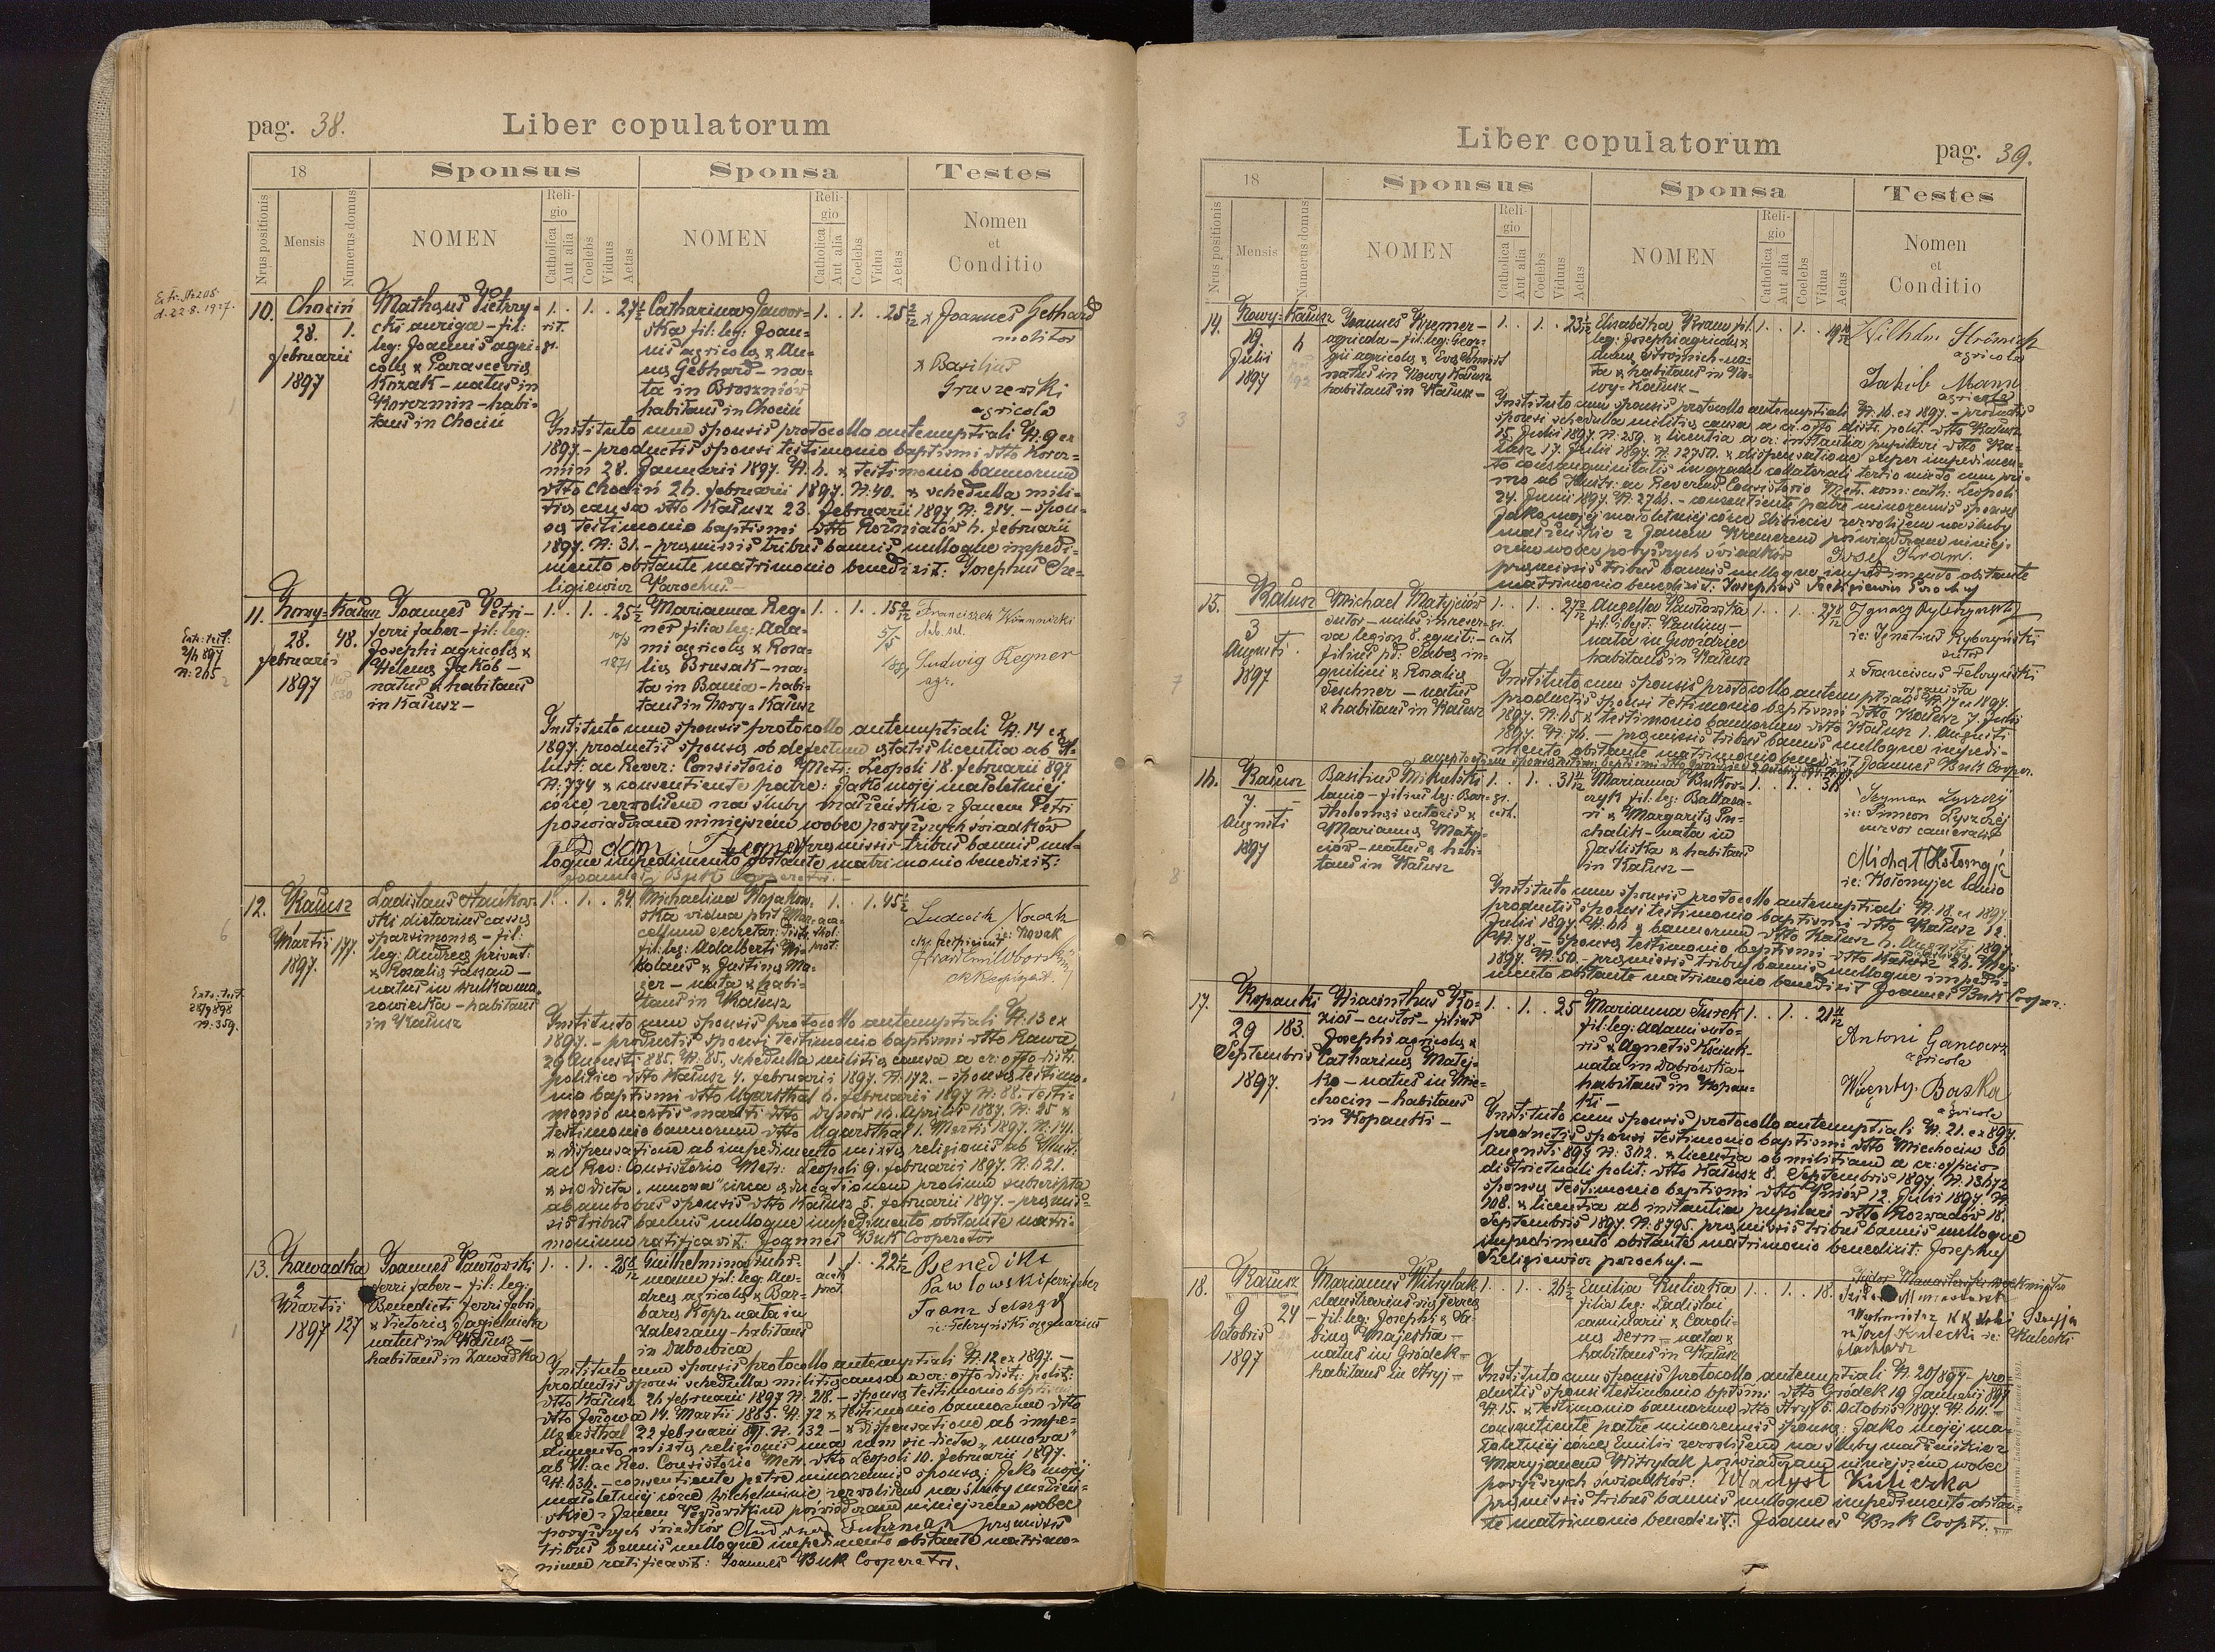 pag. 38.
Liber copulatorum
18
Sponsus
Sponsa
Testes
Nrus positionis
Mensis
Numerus domus
NOMEN
Religio
Catholica
Aut alia
Coelebs
Viduus
Aetas
NOMEN
Religio
Catholica
Aut alia
Coelebs
Vidua
Aetas
Nomen
et
Conditio
10. Chocin
28. 1.
februarii
1897
Matheus Pietrzy-
cki auriga - fil:
leg: Joannis agri-
colę & Parascevię
Kozak - natus in
habi-
tans in Chocin
1. . 1. . 27
rit.
gr.
Catharina Jawor-
ska fil: leg: Joan-
nis agricolę & An-
nę Gebhard - na-
ta in Broszniów
habitans in Chocin
1. . 1. . 25
x Joannes Gebhard
molitor
x Basilius
Gruszewski
agricola
Instituto cum sponsis protocollo antenuptiali N: 9 ex
1897. - productis sponsi testimonio baptismi dtto
28. Januarii 1897. & testimonio bannorum
dtto Chocin februarii 1897. N: 40. & schedulla mili-
tię causa dtto Kałusz 23. februarii 1897 N: 214. - spon-
sę testimonio baptismi dtto Rożniatów februarii
1897. N: 31. - pręmissis tribus bannis nulloque impedi-
mento obstante matrimonio benedixit: Josephus Sze-
ligiewicz Parochus
11. Nowy-Kałusz
28. 48.
februarii
1897
Joannes Petri -
ferri faber - fil: leg:
Josephi agricolę &
Helenę Jakób -
natus & habitans
in Kałusz -
1. . 1. . 25
1871
Marianna Reg-
ner filia leg: Ada-
mi agricolę & Rosa-
lię Brusak - na-
ta in Bania - habi-
tans in Nowy-Kałusz
1. . 1. . 15
Franciszek
Ludwig Regner
agr.
Instituto cum sponsis protocollo antenuptiali N: 14 ex
1897. productis sponsę ob defectum ętatis licentia ab Il-
lust: ac Rever: Consistorio Metr: Leopoli 18. februarii 897
N: 774 & consentiente patre: Jako mojéj małoletniéj
córce zezwoliłem na śluby małżeńskie z Janem Petri
poświadczam niniejszém wobec powyższych świadków
Adam Regner pręmissis tribus bannis nul-
loque impedimento obstante matrimonio benedixit:
Joannes Buk Cooperator. -
12. Kałusz
1
Martii 177.
1897.
Ladislaus
ski dietarius cassę
parsimonię - fil:
leg: Andreę privat:
& Rosalię Fassan -
natus in Wulka ma-
zowiecka - habitans
in Kałusz
1. . 1. . 24
Michaelina
ska vidua post Mar-
cellum secretar:
fil: leg: Adalberti Mi-
& Justinę Ma-
jer - nata & habi-
tans in Kałusz
1. . 1. 45
Ludwik Nowak
ie: Novak
Instituto cum sponsis protocollo antenuptiali N: 13 ex
1897. - productis sponsi testimonio baptismi dtto Rawa
29 Augusti 885. N: 85, schedulla militię causa a cr: offo distr:
politico dtto Kałusz 4. februarii 1897. N: 172. - sponsę testimo-
nio baptismi dtto Ugarsthal februarii 1897 N: 88. testi-
monio mortis mariti dtto Dynów Aprilis 1887. N: 25 &
testimonio bannorum dtto Ugarsthal 1. Martii 1897. N: 141.
& dispensatione ab impedimento mixtę religionis ab Illust:
ac Rev: Consistorio Metr: Leopoli 9. februarii 1897. N. 621.
& sic dicta "umowa" circa educationem prolium subscripta
ab ambobus sponsis dtto Kałusz 5. februarii 1897. - pręmis-
sis tribus bannis nulloque impedimento obstante matri-
monium ratificavit: Joannes Buk Cooperator
13. Zawadka
2
Martii
1897 127
Joannes Pawłowski
ferri faber - fil: leg:
Benedicti ferri fabri
& Victorię Jagielnicka
natus in Kałusz -
habitans in Zawadka
1. . 1. . 28
Guilhelmina Fuhr-
mann fil: leg: An-
dreę agricolę & Bar-
barę Kopp nata in
Zaleszany - habitans
in Dubowica
1 1. . 22
Benedikt
Pawlowski ferri faber
Franz
Instituto cum sponsis protocollo antenuptiali N: 12 ex 1897. -
productis sponsi schedulla militię causa a cr: offo distr: polit:
dtto Kałusz februarii 1897 N: 218. - sponsę testimonio baptismi
dtto Jeżowa 14. Martii 1885. N: 72 & testimonio bannorum dtto
Ugarsthal 22 februarii 97. N. 132 - & dispensatione ab impe-
dimento mixtę religionis una cum sic dicta "umowa"
ab Ill: ac Rev. Consistorio Metr. dtto Leopoli 10. februarii 1897.
N: 636. - consentiente patre minorennis sponsę: Jako mojéj
małoletniéj córce Wilhelminie zezwoliłem na śluby małżeń-
skie z Janem Pawłowskim poświadczam niniejszém wobec
powyższych świadków Andreas Fuhrman pręmissis
tribus bannis nulloque impedimento obstante matrimo-
nium ratificavit: Joannes Buk Cooperator.
Liber copulatorum
pag. 39.
18
Sponsus
Sponsa
Testes
Nrus positionis
Mensis
Numerus domus
NOMEN
Religio
Catholica
Aut alia
Coelebs
Viduus
Aetas
NOMEN
Religio
Catholica
Aut alia
Coelebs
Vidua
Aetas
Nomen
et
Conditio
14. Nowy-Kałusz
19
Julii
1897
Joannes Kremer -
agricola - fil: leg: Geor-
gii agricolę & Evę Schmidt
natus in Nowy Kałusz
habitans in Kałusz -
1. . 1. . 23
Elisabetha Kram fil:
leg: Josephi agricolę &
Annę Strömich - na-
ta & habitans in No-
wy-Kałusz -
1. . 1. . 19
Wilhelm Strömich
agricola
Jakób Mann
agricola
Instituto cum sponsis protocollo antenuptiali N: 16. ex 1897. - productis
sponsi schedulla militię causa a cr. offo distr: polit: dtto Kałusz
15. Julii 1897. N: 259. & licentia a cr: instantia pupillari dtto Ka-
łusz 17. Julii 1897. N: 12750. & dispensatione super impedimen-
to consanguinitatis in gradu collaterali tertio mixto cum pri-
mo ab Illustr: ac Reverend: Consistorio Metr. rom: cath: Leopoli
24. Junii 1897. N: 2764. - consentiente patre minorennis sponsę
Jako mojéj małoletniéj córce Elżbiecie zezwoliłem na śluby
małżeńskie z Janem Kremerem poświadczam niniej-
szém wobec powyższych świadków Josef Kram.
pręmissis tribus bannis nulloque impedimento obstante
matrimonio benedixit: Josephus Szeligiewicz Parochus
15. Kałusz
3
Augusti
1897
Michael Matyjciów
sutor - miles in reser-
va legion 8. equit: -
filius pd: Sabę in-
quilini & Rosalię
Teschner - natus
& habitans in Kałusz
1. . 1. . 27
Angella Pawłowska
fil: illegt: Paulinę -
nata in Gwoździec
habitans in Kałusz
1. . 1. . 27
Ignacy Rybczyński
ie: Ignatius Rybczyński
sutor
x Franciscus Felczyński
organista
Instituto cum sponsis protocollo antenuptiali N: 17 ex 1897.
productis sponsi testimonio baptismi dtto Kałusz 7. Julii
1897. N: 65 & testimonio bannorum dtto Kałusz 1. Augusti
1897. N: 76. - pręmissis tribus bannis nulloque impedi-
mento obstante matrimonio benedixit Joannes Buk Cooper.
16. Kałusz
7
Augusti
1897
Basilius Mikulski
lanio - filius leg: Bar-
tholomęi sutoris &
Mariannę Matyj-
ciów - natus & habi-
tans in Kałusz
1. . 1. . 31
Marianna
fil: leg: Baltasa-
ri & Margaritę
nata in
Jaśliska & habitans
in Kałusz -
1. . 1. . 38
Szymon Łyszczij
ie: Simeon Łyszczéj
cursor cameralis
Michał Kołomyjc
ie: Kołomyjec lanio
Instituto cum sponsis protocollo antenuptiali N: 18. ex 1897.
productis sponsi testimonio baptismi dtto Kałusz 12.
Julii 1897. N: 66 & bannorum dtto Kałusz Augusti 1897
N: 78. - sponsę testimonio baptismi dtto
1897. N: 50. - pręmissis tribus bannis nulloque impedi-
mento obstante matrimonio benedixit Joannes Buk Cooper:
17. Kopanki
29 183.
Septembris
1897.
Hiacinthus Ko-
zioł - custos - filius
Josephi agricolę &
Catharinę Matej-
ko - natus in Mie-
chocin - habitans
in Kopanki -
1. . 1. . 25
Marianna Turek
fil: leg: Adami suto-
ris & Agnetis
nata in Dąbrówka -
habitans in Kopan-
ki -
1. . 1. . 21
Antoni Gancarz
agricola
Wicenty. Baska
agricola
Instituto cum sponsis protocollo antenuptiali N. 21. ex 897.
productis sponsi testimonio baptismi dtto Miechocin 30
Augusti 897 N: 302. & licentia ob militiam a cr: officio
districtuali polit: dtto Kałusz 8. Septembris 1897. N. 13672
sponsę testimonio baptismi dtto 12. Julii 1897. N.
108. & licentia ab instantia pupilari dtto Rozwadów 18.
Septembris 1897. N: 8795. pręmissis tribus bannis nulloque
impedimento obstante matrimonio benedixit: Josephus
Szeligiewicz parochus. -
18. Kałusz
9 24
Octobris
1897
Marianus Witrylak
claustrarius vię ferreę
- fil: leg: Josephi & Sa-
binę Majeska -
natus in Gródek -
habitans in Stryj -
1. . 1. . 26
Emilia Kuliczka
filia leg: Ladislai
caminarii & Caroli-
nę Dern - nata &
habitans in Kałusz
1. . 1. . 18.
Instituto cum sponsis protocollo antenuptiali N. 20/897 - pro-
ductis sponsi testimonio bptsmi dtto Gródek 19 Januarii 897
N. 15. & testimonio bannorum dtto Stryj 5. Octobris 1897 N. 611 -
consentiente patre minorennis sponsę: Jako mojéj ma-
łoletniéj córce Emilii zezwoliłem na śluby małżeńskie z
Maryjanem Witrylak poświadczam niniejszém wobec
powyższych świadków: Władysł Kuliczka
pręmissis tribus bannis nulloque impedimento obstan-
te matrimonio benedixit: Joannes Buk Cooptr.